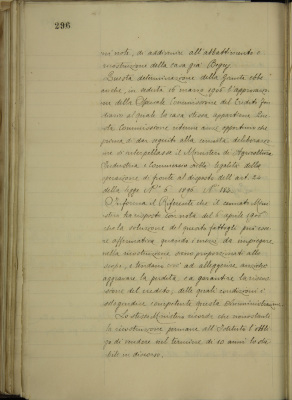 296
noi note, di addivenire all'abbattimento e
ricostruzione della casa già Bogey.
Questa determinazione della Giunta ebbe
anche, in adunta 26 marzo 1906 l'approvazio
ne della Speciale Commissione del Credito fon
diario al quale la casa stessa appartiene. Que
sta Commissione ritenne anzi opportuno che
prima di dar seguito alla presa deliberazio
ne s'interpellasse il Ministero di Agricoltura
Industria e Commercio sulla legalità della
operazione di fronte al disposto dell'art. 20
della legge
D'informa il Riferente che il cennato Mini
stero ha risposto con nota del 6 aprile 1906
che la soluzione del quesito fattogli può esse
re affermativa, quando i mezzi da impiegare
nella ricostruzione siano proporzionati allo
scopo, e tendano cioè ad alleggerire anziché
aggravare la perdita, ed a garantire la riscos
sione del credito, delle quali condizioni è
solo giudice competente questa Amministrazione.
Lo stesso Ministero ricorda che nonostante
la ricostruzione permane all'Istituto l'obbli
go di vendere nel termine di 10 anni lo sta
bile in discorso.